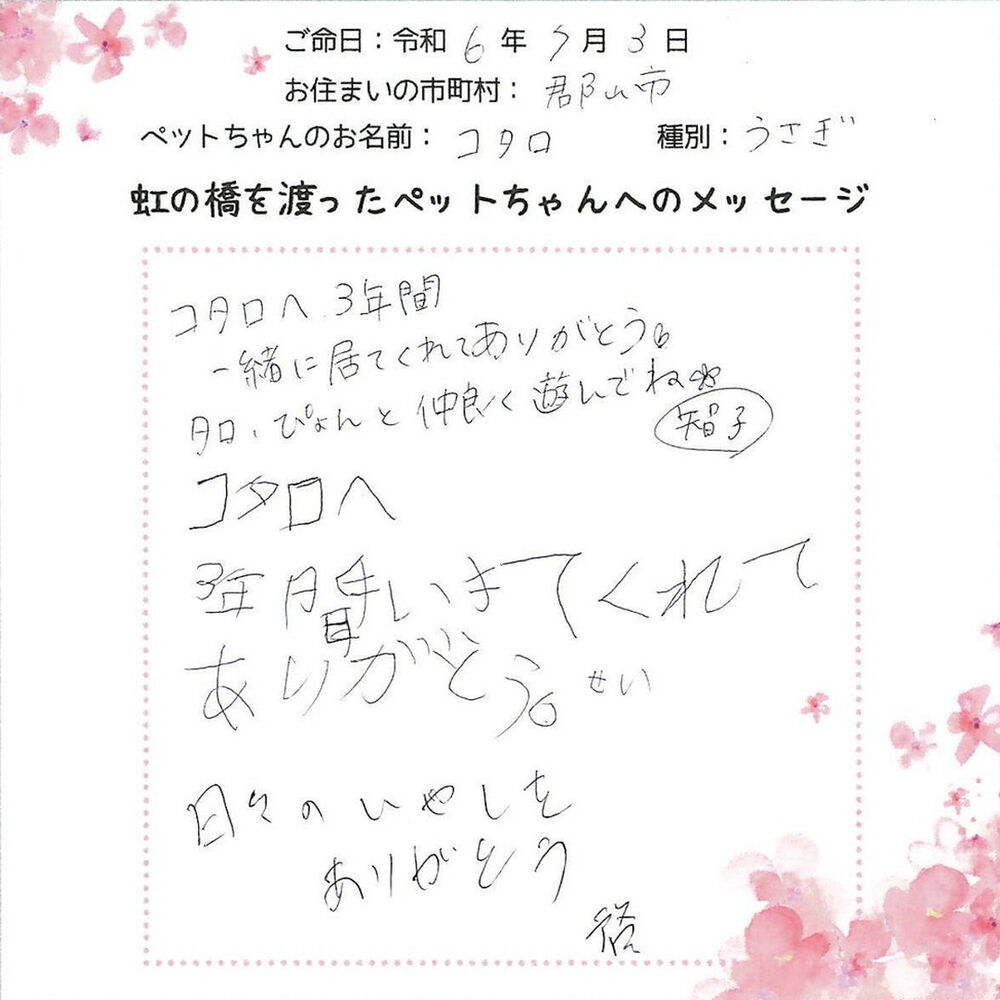 ご命日：令和 6 年 7 月 3 日
お住まいの市町村： 郡山市
ペットちゃんのお名前： コタロ 種別： うさぎ
虹の橋を渡ったペットちゃんへのメッセージ
コタロへ 3年間
一緒に居てくれてありがとう。
タロ、ぴょんと仲良く遊んでね
智子
コタロへ
3年間いきてくれて
ありがとう。 せい
日々のいやしを
ありがとう